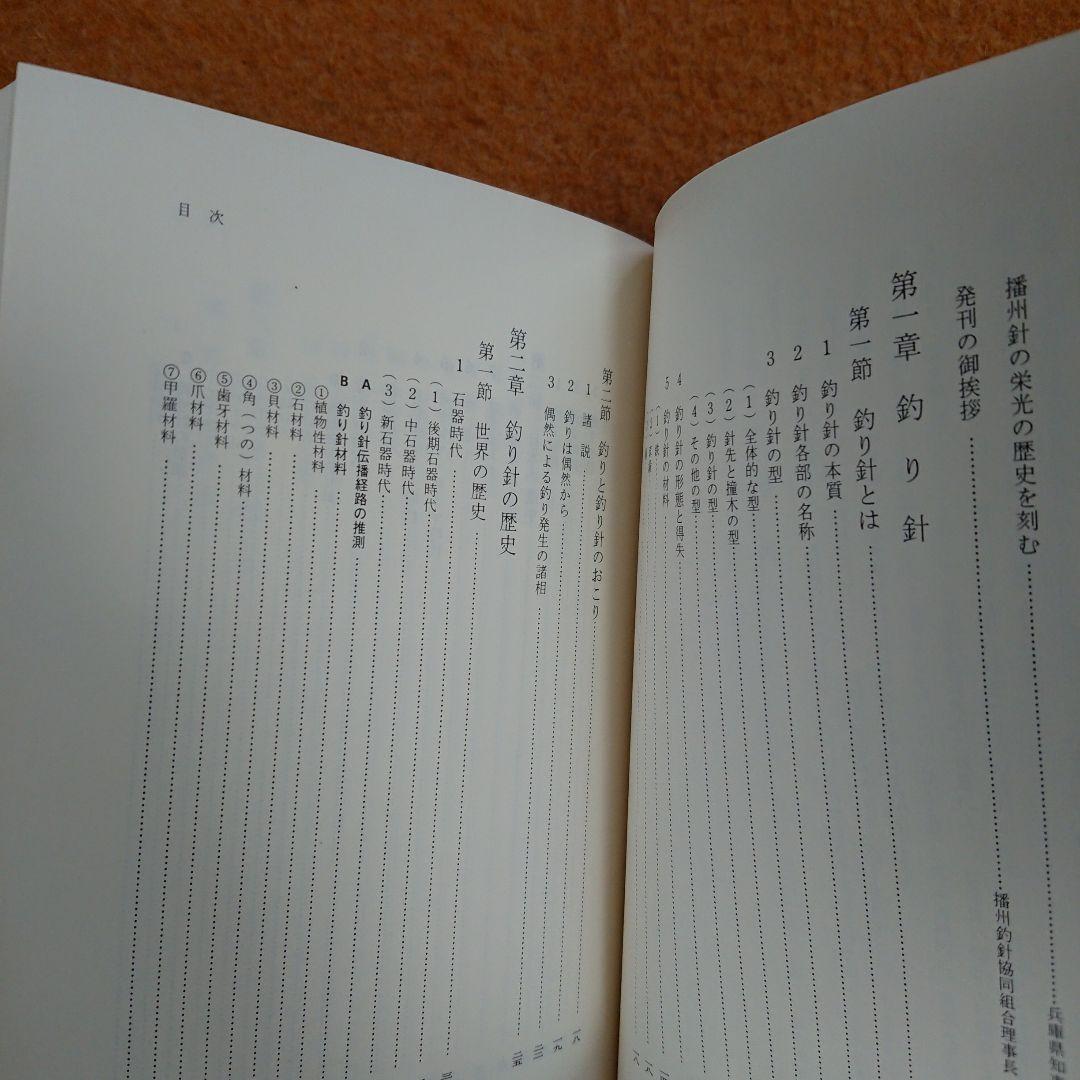 播州針の栄光の歴史を刻む
兵庫県知事
発刊の御挨拶
播州釣針協同組合理事長
第一章 釣り針
第一節 釣り針とは
1 釣り針の本質
2 釣り針各部の名称
3 釣り針の型
(1)全体的な型
(2)針先と撞木の型
(3)釣り針の型
(4)その他の型
4 釣り針の形態と得失
5 釣り針の材料
目次
第二節 釣りと釣り針のおこり
1 諸説
2 釣りは偶然から
3 偶然による釣り発生の諸相
第二章 釣り針の歴史
第一節 世界の歴史
1 石器時代
(1)後期石器時代
(2)中石器時代
(3)新石器時代
A 釣り針伝播経路の推測
B 釣り針材料
①植物性材料
②石材料
③貝材料
④角(つの)材料
⑤歯牙材料
⑥爪材料
⑦甲羅材料